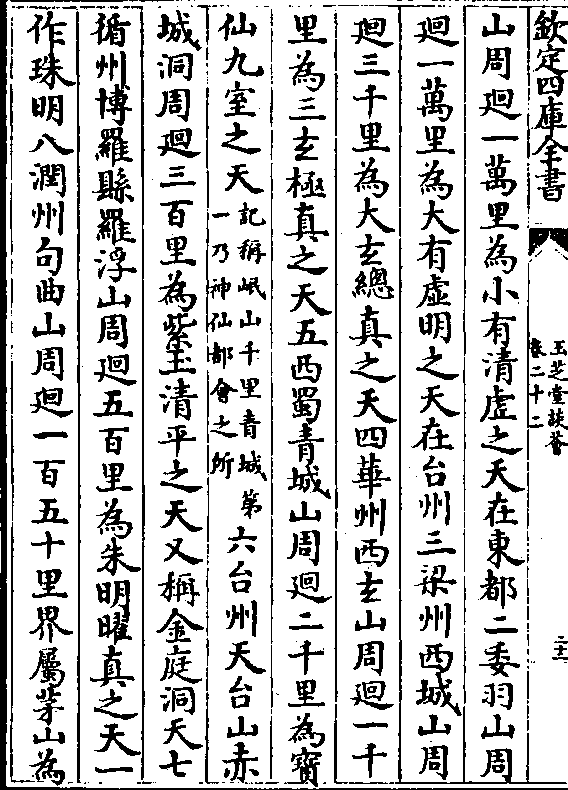 欽定四庫全書
玉芝堂談薈
卷二十二
二十一
山周廻一萬里為小有清虛之天在東都二委羽山周
廻一萬里為大有虛明之天在台州三梁州西城山周
廻三千里為大玄總真之天四華州西玄山周廻一千
里為三玄極真之天五西蜀青城山周廻二千里為寳
仙九室之天記稱岷山千里青城第
一乃神仙都會之所六台州天台山赤
城洞周廻三百里為紫玉清平之天又稱金庭洞天七
循州博羅縣羅浮山周廻五百里為朱明曜真之天一
作珠明八潤州句曲山周廻一百五十里界屬茅山為